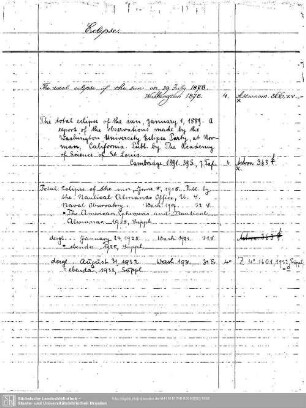 Eclipse.
The total eclipse of the sun on 29 July 1878.
Washington 1876. 4.
The total eclipse of the sun, January 1, 1889. A
report of the observations made by the
Washington University Eclipse Party, at Nor-
man, California. Publ. by The Academy
of Science of St Louis.
Cambridge 1891. 39 S., 7 Taf. 4 Astron. 363
Total Eclipse of the sun, June 8, 1918. Publ. by
the Nautical Almanac Office, U. S.
Naval Observatory. Wash. 1917.
= The American Ephemeris and Nautical
Almanac 1918, Suppl.
dergl. January 24, 1925. Wash. 192
= ebenda, 1925, Suppl.
dergl. August 31, 1932 Wash 193. 31 S. 4° Z. 4° 1601, 1932, Suppl.
= ebenda, 1932, Suppl